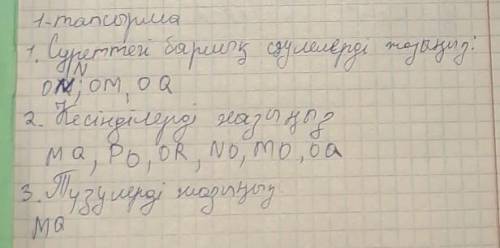 1-тапсырма
1. Суреттегі барлық сәулелерді жазыңыз:
ON, OM, OQ
2. Кесінділерді жазыңыз
MQ, PO, OR, NO, MO, OQ
3. Түзулерді жазыңыз
MQ